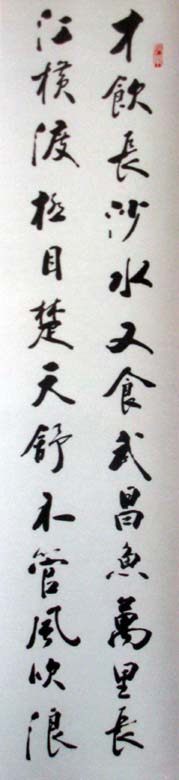 才飲長沙水又食武昌魚萬里長
江橫渡極目楚天舒不管風吹浪